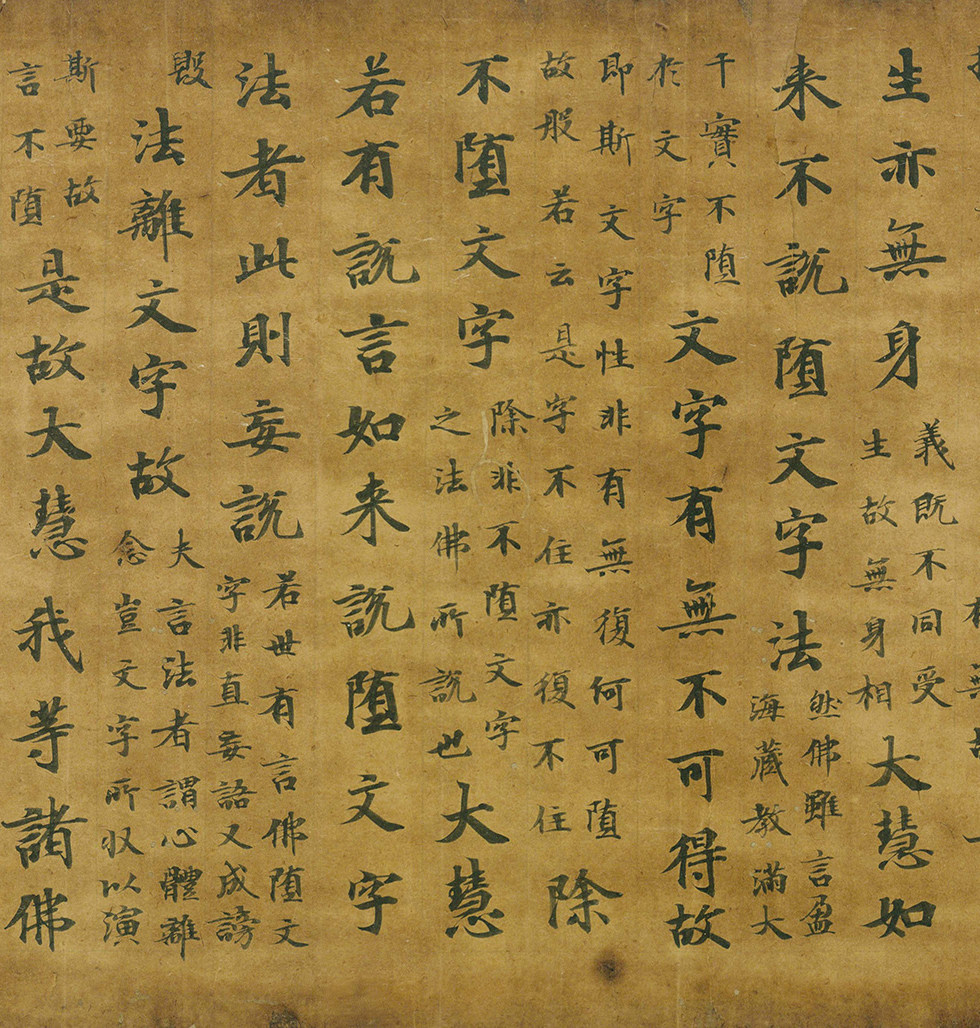 生亦無身義既不同受
生故無身相大慧如
来不說堕文字法然佛雖言盈
海藏教滿大
千實不堕
於文字文字有無不可得故
即斯文字性非有無復何可堕
故般若云是字不住亦復不住除
不堕文字除非不堕文字
之法佛所說也大慧
若有說言如来說堕文字
法者此則妄說若世有言佛堕文
字非直妄語又成謗
毀法離文字故夫言法者謂心體離
念豈文字所収以演
斯要故
言不堕是故大慧我等諸佛